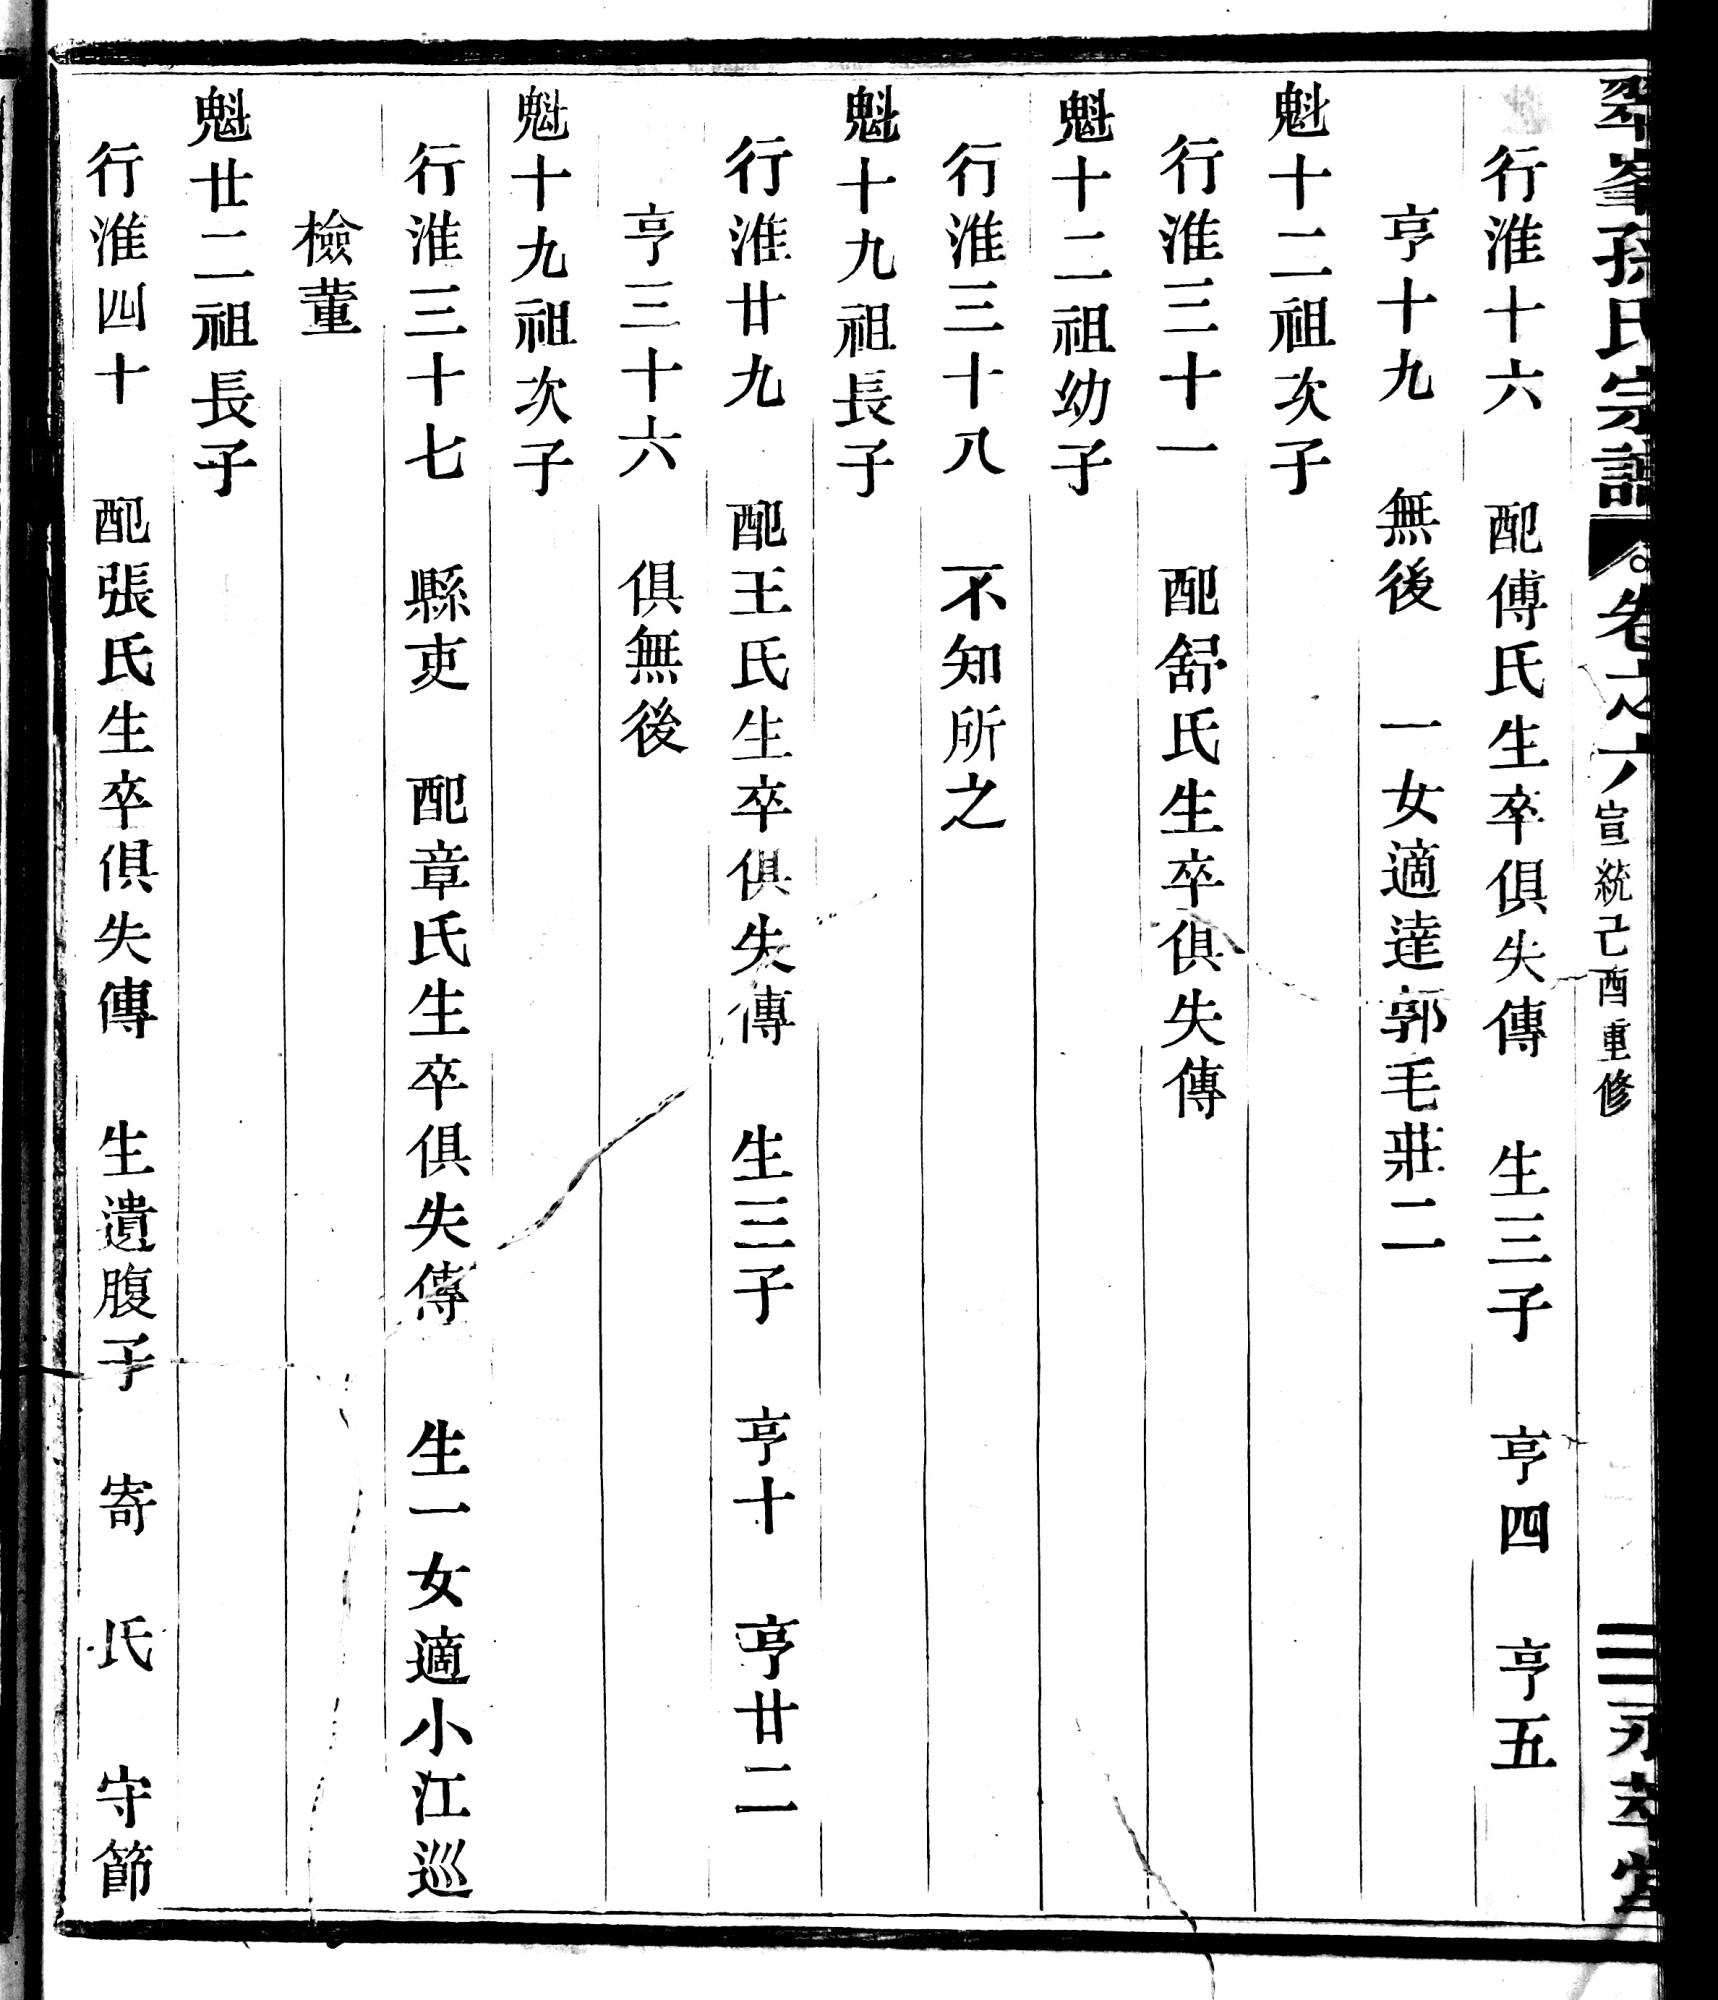 翠峯孫氏宗譜 卷之六 宣統己酉重修 三 永萃堂
行淮十六 配傅氏生卒俱失傳 生三子 亨四 亨五
亨十九 無後 一女適達郭毛莊二
魁十二祖次子
行淮三十一 配舒氏生卒俱失傳
魁十二祖幼子
行淮三十八 不知所之
魁十九祖長子
行淮廿九 配王氏生卒俱失傳 生三子 亨十 亨廿二
亨三十六 俱無後
魁十九祖次子
行淮三十七 縣吏 配章氏生卒俱失傳 生一女適小江巡
檢董
魁廿二祖長子
行淮四十 配張氏生卒俱失傳 生遺腹子 寄 氏 守節